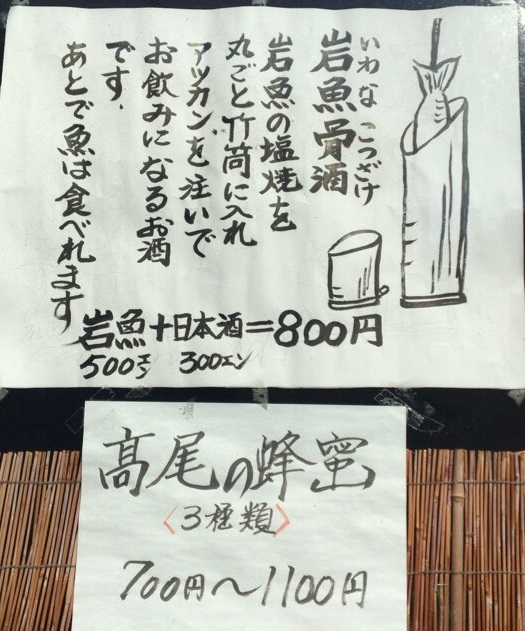 いわな こつざけ
岩魚骨酒
岩魚の塩焼を
丸ごと竹筒に入れ
アツカンを注いで
お飲みになるお酒
です.
あとで魚は食べれます
岩魚+日本酒=800円
500エン 300エン
髙尾の蜂蜜
〈3種類〉
700円〜1100円